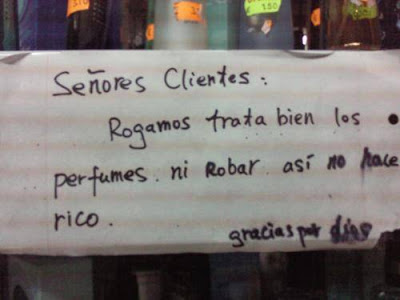 Señores Clientes:
Rogamos trata bien los
perfumes. ni Robar. así no hace
rico.
gracias por dios